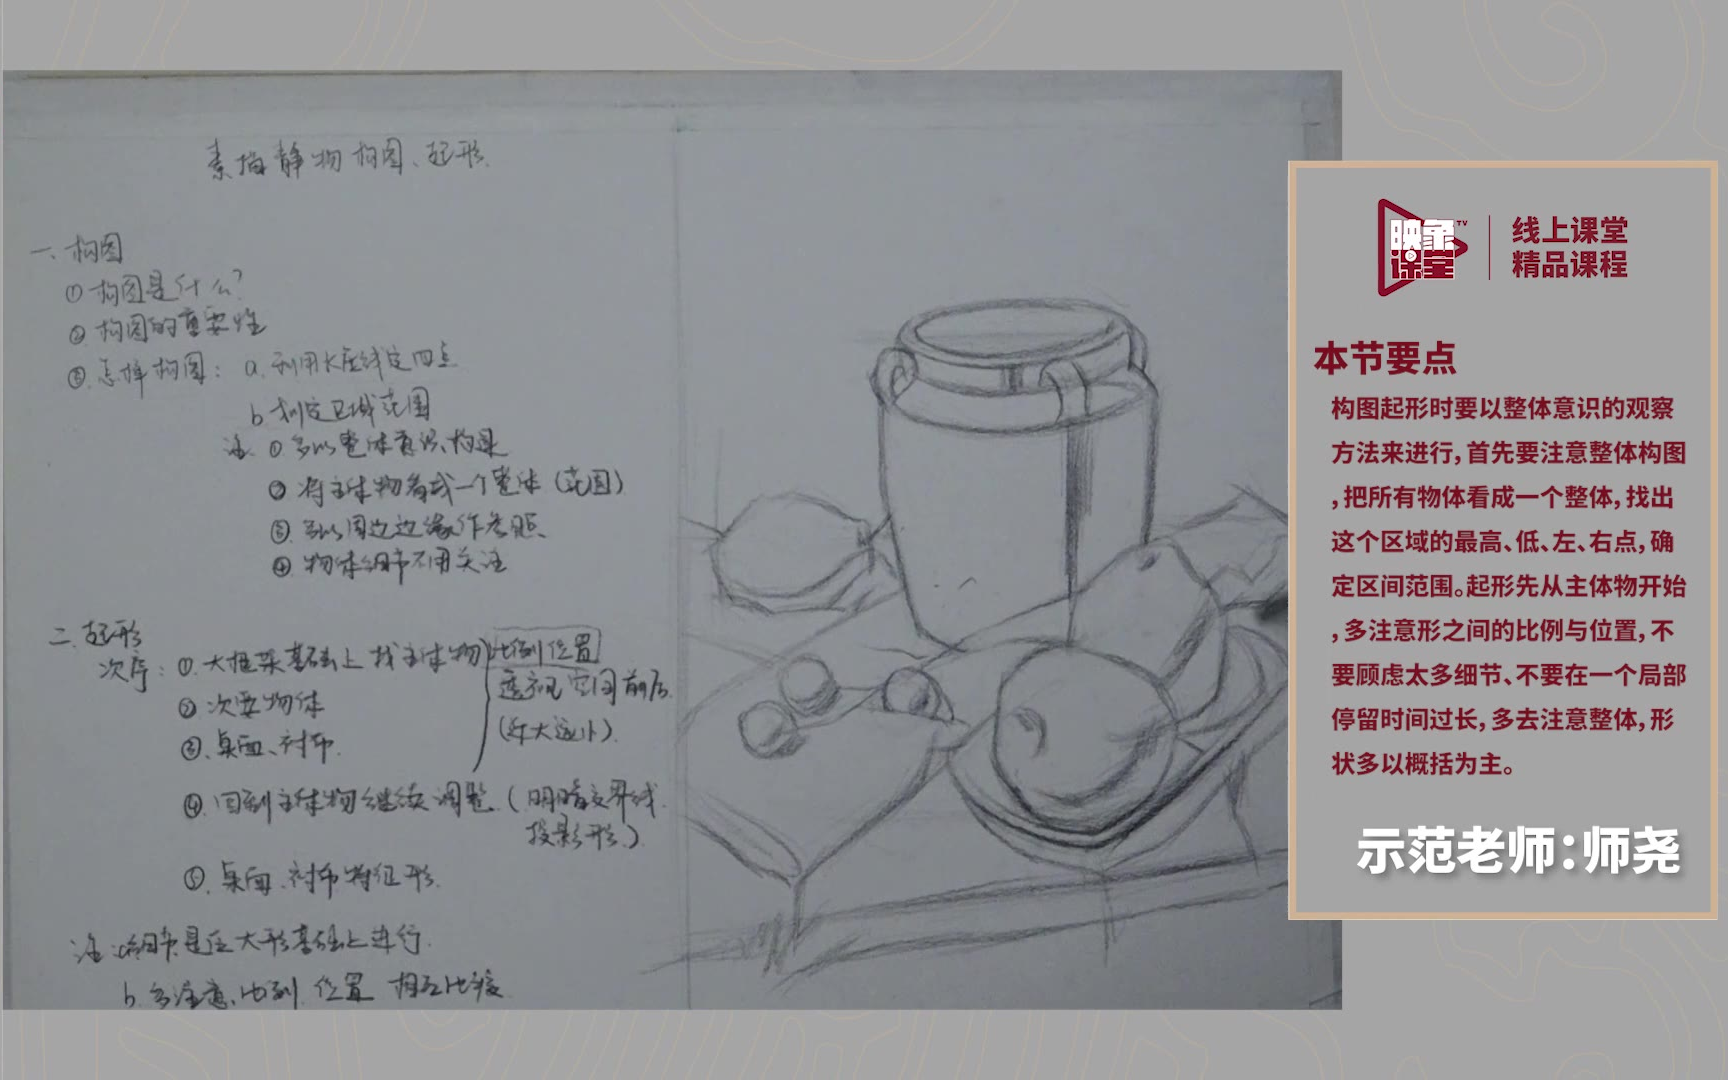 素描静物构图、起形.
一、构图
① 构图是什么?
② 构图的重要性
③. 怎样构图: a. 利用长直线定四点
b 划定区域范围
注 ① 多以整体意识、构图
② 将主体物看成一个整体 (范围)
③. 多以周边边缘作参照、
④. 物体细节不用关注
二. 起形
次序: ①. 大框架基础上 找主体物 比例 位置
透视 空间 前后.
(近大远小).
② 次要物体
③. 桌面、衬布.
④. 回到主体物继续调整. (明暗交界线.
投影形.)
⑤. 桌面、衬布特征形.
注: a 细节是在大形基础上进行.
b. 多注意、比例 位置 相互比较
映象课堂TV
线上课堂
精品课程
本节要点
构图起形时要以整体意识的观察
方法来进行,首先要注意整体构图
,把所有物体看成一个整体,找出
这个区域的最高、低、左、右点,确
定区间范围。起形先从主体物开始
,多注意形之间的比例与位置,不
要顾虑太多细节、不要在一个局部
停留时间过长,多去注意整体,形
状多以概括为主。
示范老师:师尧